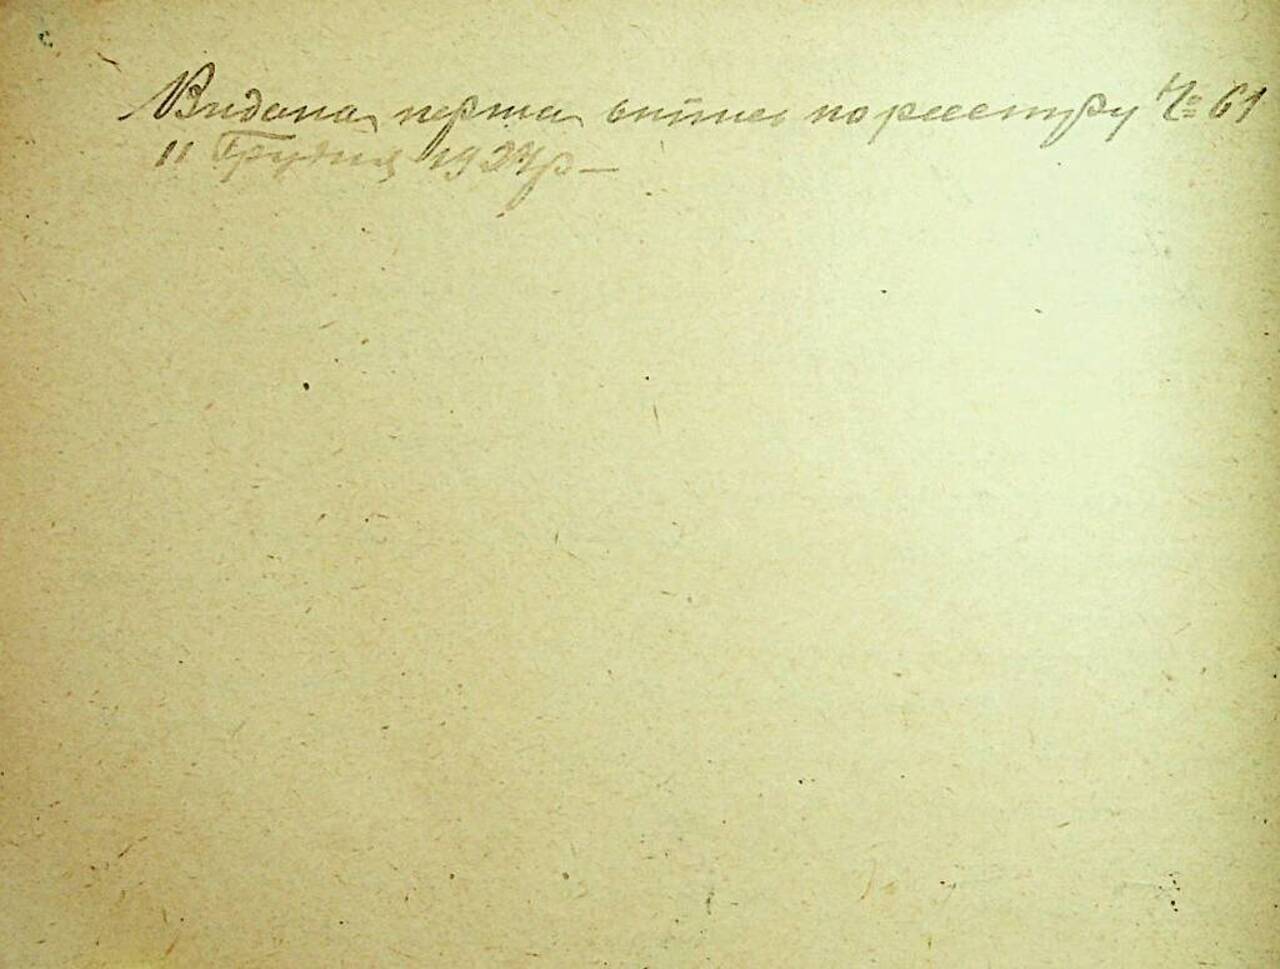 Видана перша витись по реестру № 61
11 Грудня 1924 р –